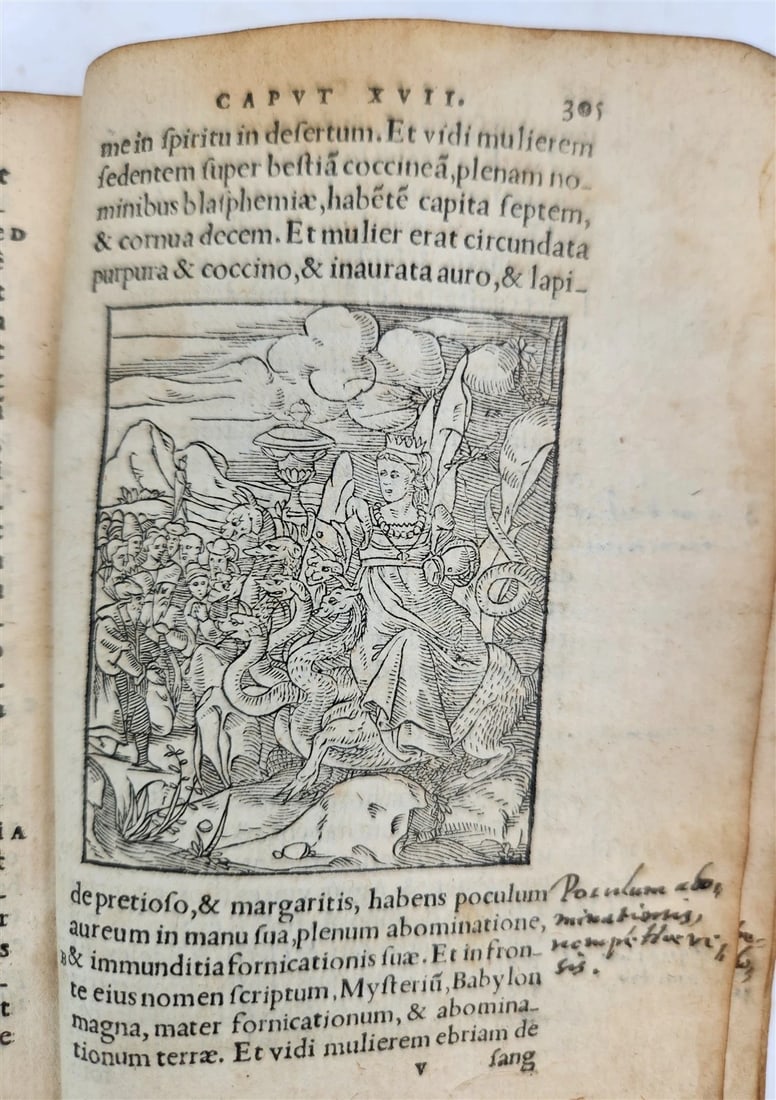 CAPVT XVII. 305
me in ſpiritu in deſertum. Et vidi mulierem
ſedentem ſuper beſtiã coccineã, plenam no-
minibus blaſphemiæ, habẽtẽ capita ſeptem,
& cornua decem. Et mulier erat circundata
purpura & coccino, & inaurata auro, & lapi-
de pretioſo, & margaritis, habens poculum
aureum in manu ſua, plenum abominatione,
B & immunditia fornicationis ſuæ. Et in fron-
te eius nomen ſcriptum, Myſteriũ, Babylon
magna, mater fornicationum, & abomina-
tionum terræ. Et vidi mulierem ebriam de
v ſang
Poculum abo,
minationis,
nempe
sis.